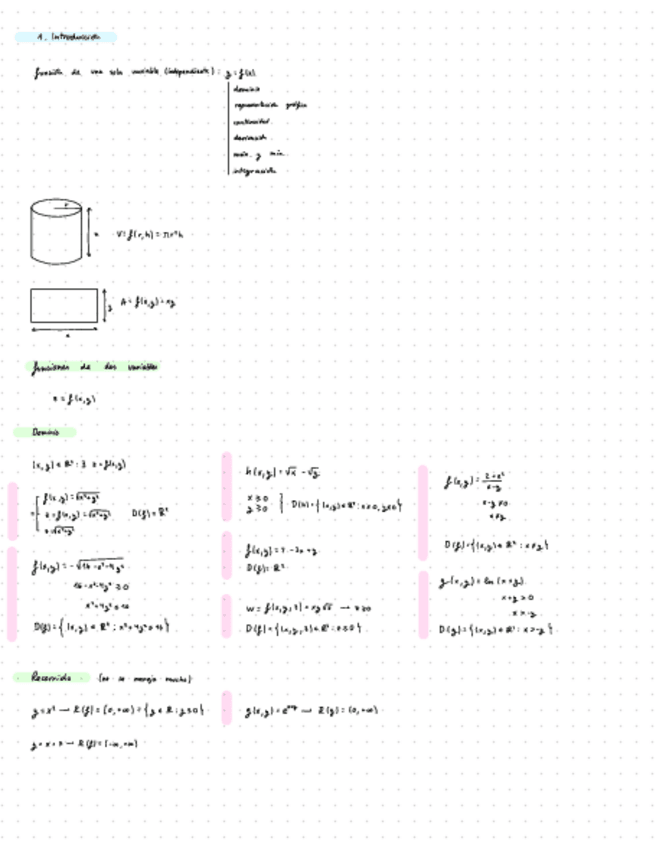 1. Introducción
función de una sola variable (independiente): y=f(x)
dominio
representación gráfica
continuidad
derivación
máx. y mín.
integración
r
h
V=f(r,h)=πr²h
y
A=f(x,y)=xy
x
funciones de dos variables
z=f(x,y)
Dominio
(x,y)∈ℝ²: ∃ z=f(x,y)
f(x,y)=√x²+y²
z=f(x,y)=√x²+y²
z=√x²+y²
D(f)=ℝ²
f(x,y)=-√16-x²-4y²
16-x²-4y²≥0
x²+4y²≤16
D(f)={(x,y)∈ℝ²: x²+4y²≤16}
h(x,y)=√x -√y
x≥0
y≥0
D(h)={(x,y)∈ℝ²: x≥0, y≥0}
D(f)=ℝ²
w=f(x,y,z)=xy√z → z≥0
D(f)={(x,y,z)∈ℝ³: z≥0}
x-y≠0
x≠y
D(f)={(x,y)∈ℝ²: x≠y}
g(x,y)=ln(x+y)
x+y>0
x>-y
D(g)={(x,y)∈ℝ²: x>-y}
Recorrido (no se maneja mucho)